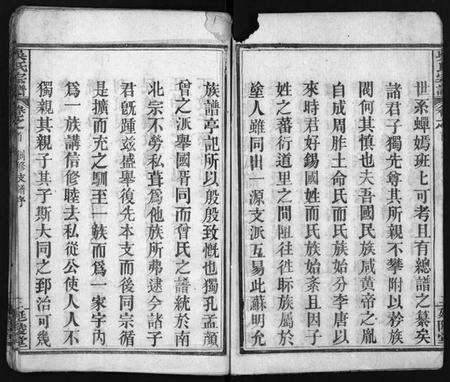 世系蟬嫣班班可考且有總譜之纂矣
諸君子獨先尊其所親不攀附以矜族
閥何其慎也夫吾國民族咸黄帝之胤
自成周胙土命氏而氏族始分李唐以
來時君好錫國姓而氏族始紊且因子
姓之蕃衍道里之間阻往往眎族屬於
塗人雖同出一源支派互易此蘇明允
族譜亭記所以殷殷致慨也獨孔孟顔
曾之派舉國胥同而曾氏之譜統於南
北宗不勞私葺爲他族所弗逮今諸子
君既踵玆盛舉後先本支而後同宗循
是擴而充之馴至一族而爲一家宇內
爲一族講信修睦去私從公使人人不
獨親其親子其子斯大同之郅治可幾
吳氏宗譜
卷之首
支譜序
延陵堂